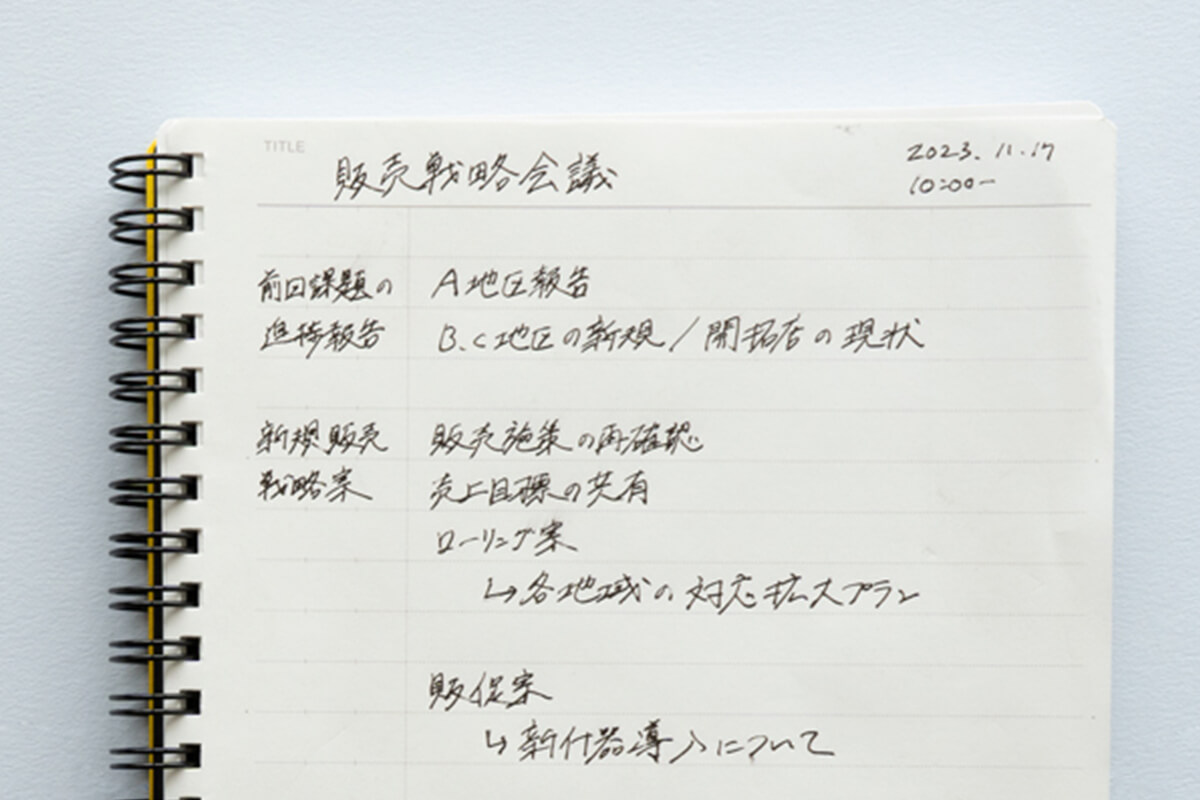 TITLE 販売戦略会議 2023.11.17
10:00ー
前回課題の A地区報告
進捗報告 B.C地区の新規/開拓店の現状
新規販売 販売施策の再確認
戦略案 売上目標の共有
ローリング案
↳各地域の対応拡大プラン
販促案
↳新什器導入について